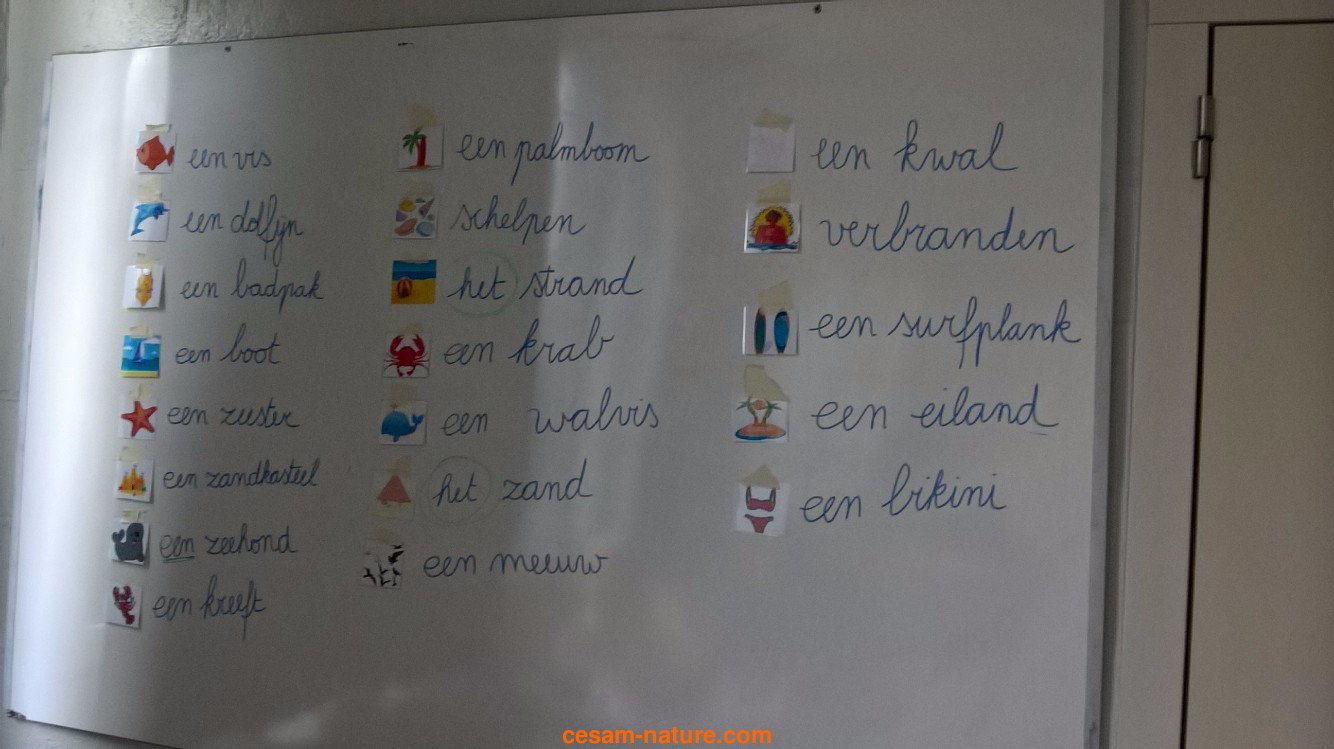 een vis
een dolfijn
een badpak
een boot
een zeester
een zandkasteel
een zeehond
een kreeft
een palmboom
schelpen
het strand
een krab
een walvis
het zand
een meeuw
een kwal
verbranden
een surfplank
een eiland
een bikini
cesam-nature.com